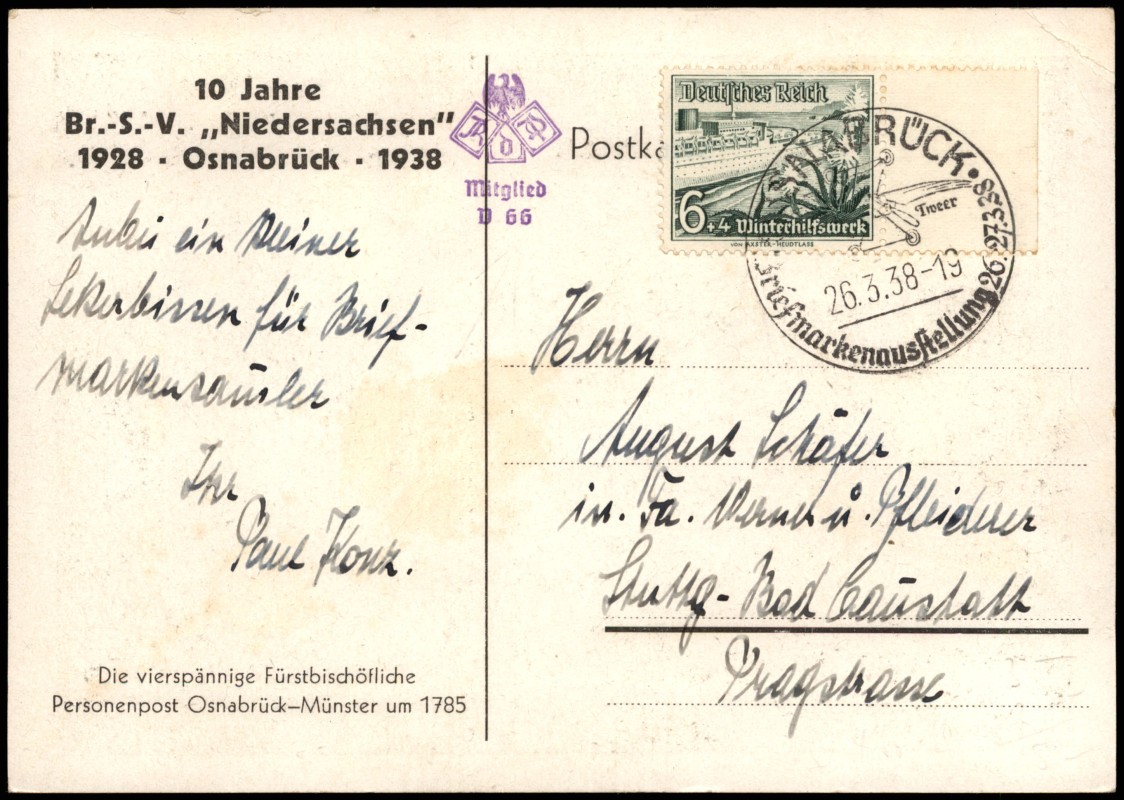 10 Jahre
Br.-S.-V. „Niedersachsen"
1928 · Osnabrück · 1938
Anbei ein kleiner
Lekerbissen für Brief-
markensamler
Ihr
Paul Konz.
Die vierspännige Fürstbischöfliche
Personenpost Osnabrück–Münster um 1785
R d P
Mitglied
D 66
Postka
Deutsches Reich
6+4 Winterhilfswerk
VOM AXSTER-HEUDTLASS
BRÜCK
Tweer
26.3.38-19
Briefmarkenausstellung 26.27.3.38
Herrn
August Schäfer
in. Fa. Werner u. Pfleiderer
Stuttg- Bad Cannstatt
Pragstrasse